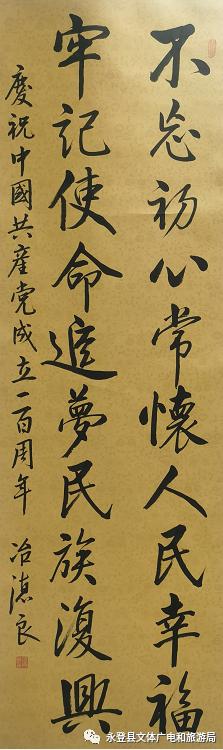 不忘初心常懷人民幸福
牢記使命追夢民族復興
慶祝中國共産党成立一百周年 冶德良
永登县文体广电和旅游局